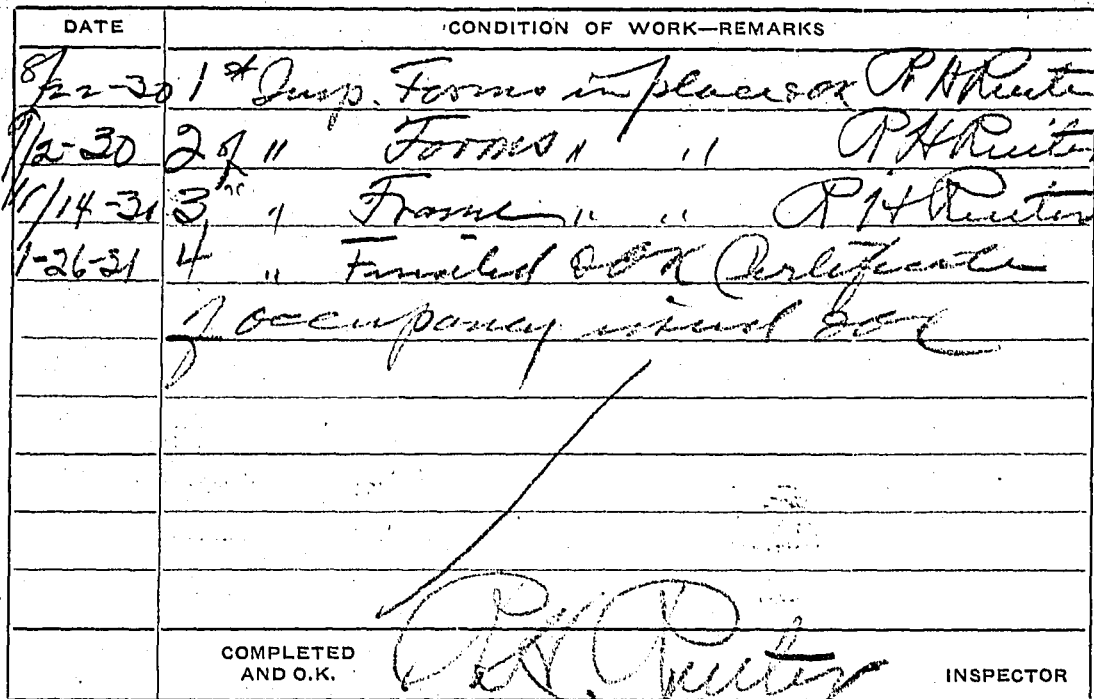 DATE CONDITION OF WORK—REMARKS
8/22-30 1st Insp. Forms in place OK R H Ruiter
9/2-30 2d " Forms " " R H Ruiter
/14-31 3 " Frame " " R H Ruiter
1-26-31 4 " Finished & OK Certificate
of occupancy issued
COMPLETED
AND O.K. R. H. Ruiter INSPECTOR